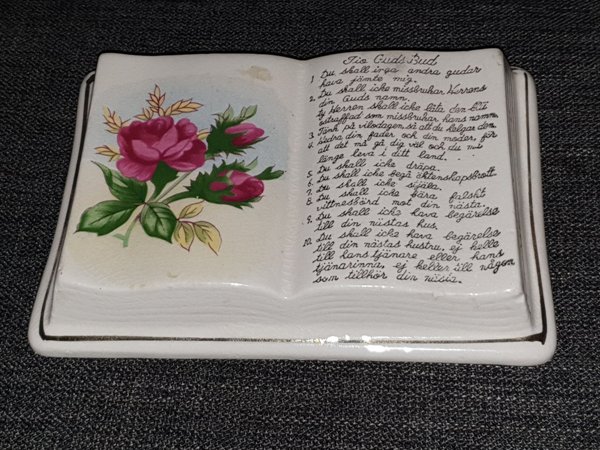 Tio Guds Bud
1. Du skall inga andra gudar
hava jämte mig.
2. Du skall icke missbruka Herrens
din Guds namn.
Ty Herren skall icke låta den bli
ostraffad som missbrukar hans namn.
3. Tänk på vilodagen, så att du helgar den.
4. Hedra din fader och din moder, för
att det må gå dig väl och du må
länge leva i ditt land.
5. Du skall icke dräpa.
6. Du skall icke begå äktenskapsbrott.
7. Du skall icke stjäla.
8. Du skall icke bära falskt
vittnesbörd mot din nästa.
9. Du skall icke hava begärelse
till din nästas hus.
10. Du skall icke hava begärelse
till din nästas hustru, ej heller
till hans tjänare eller hans
tjänarinna, ej heller till någon
som tillhör din nästa.